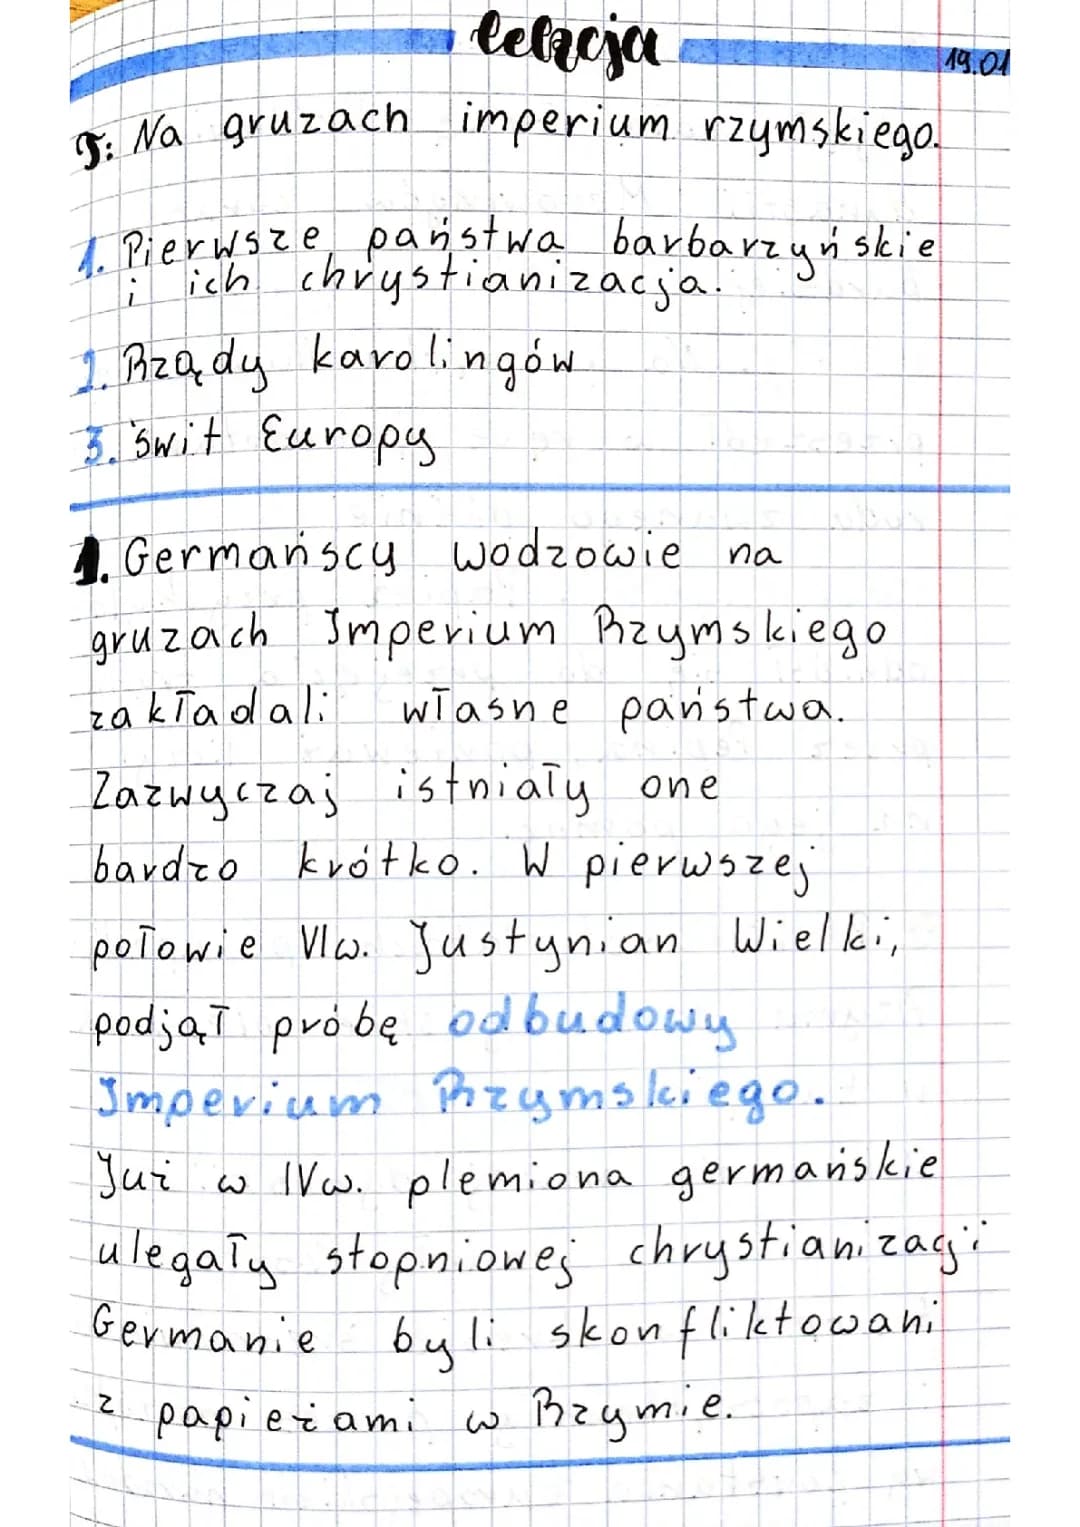 lekcja
19.01
T: Na gruzach imperium rzymskiego.
1. Pierwsze państwa barbarzyńskie
i ich chrystianizacja.
2. Rządy karolingów
3. Świt Europy
1. Germańscy wodzowie na
gruzach Imperium Rzymskiego
zakładali własne państwa.
Zazwyczaj istniały one
bardzo krótko. W pierwszej
połowie VIw. Justynian Wielki,
podjął próbę odbudowy
Imperium Rzymskiego.
Już w IVw. plemiona germańskie
ulegały stopniowej chrystianizacji
Germanie byli skonfliktowani
z papieżami w Rzymie.